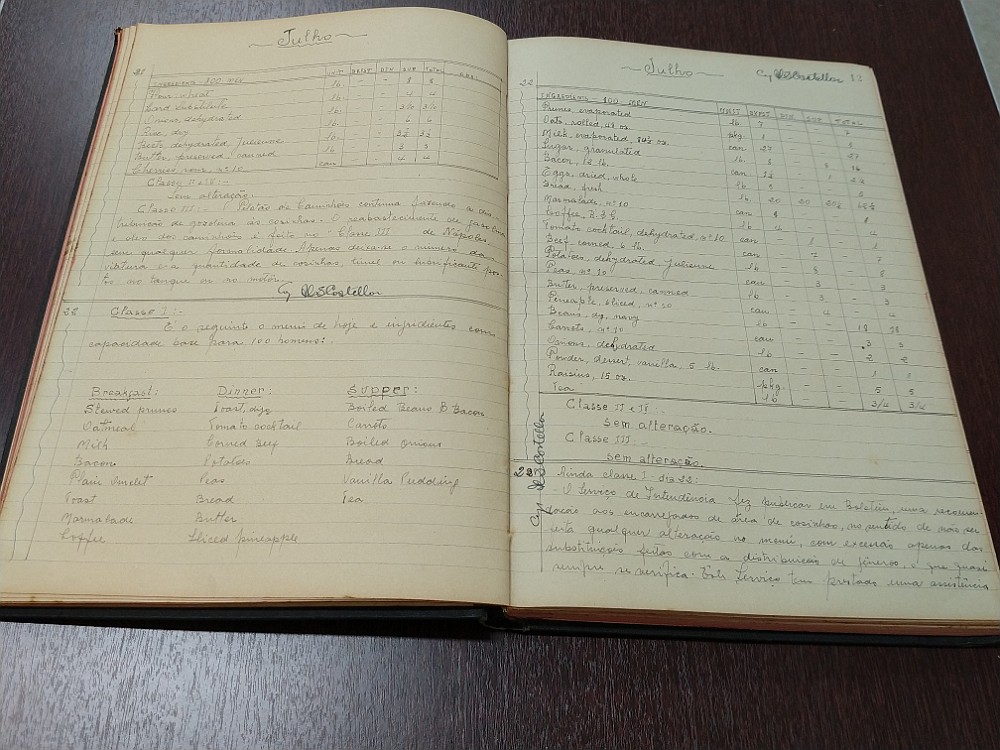 Julho
21
INGREDIENTS - 100 MEN UNIT BKFST DIN SUP TOTAL
Flour, wheat lb. - - 8 8
Lard substitute lb. - - 4 4
Onions, dehydrated lb. - - 3½ 3½
Rice, dry lb. - - 6 6
Beets, dehydrated, Julienne lb. - - 3½ 3½
Butter, preserved, canned lb. - - 3 3
Cherries nº 10 can - - 4 4
Classe II e IV: -
Sem alteração.
Classe III: - O Pelotão de Caminhões continua fazendo a dis-
tribuição de gasolina às cosinhas. O reabastecimento de gasolina
e óleo dos caminhões é feito no Classe III de Nápoles
sem qualquer formalidade. Apenas deixa-se o número da
viatura e a quantidade de combustível ou lubrificante
to no tanque ou no motor.
Cap HSCastellor
22 Classe I: -
É o seguinte o menú de hoje e ingredientes com
capacidade base para 100 homens:
Breakfast: Dinner: Supper:
Stewed prunes Toast, dry Boiled Beans & Bacon
Oatmeal Tomato cocktail Carrots
Milk Corned Beef Boiled onions
Bacon Potatoes Bread
Plain omelet Peas Vanilla Pudding
Toast Bread Tea
Marmalade Butter
Coffee Sliced pineapple
Julho Cap HSCastellor 12
22
INGREDIENTS - 100 MEN UNIT BKFST DIN SUP TOTAL
Prunes, evaporated lb 7 - - 7
Oats, rolled, 48 oz. pkg
Milk, evaporated, 14½ oz. can 27 - - 27
Sugar, granulated lb. 8
Bacon, 12 lb. can
Eggs, dried, whole lb
Bread, fresh lb 20 20
Marmalade, nº 10 can
Coffee, R & G lb 4 - - 4
Tomato cocktail, dehydrated, nº 10 can - 1 - 1
Beef, corned, 6 lb. can - 7 - 7
Potatoes, dehydrated, Julienne lb - 8 - 8
Peas, nº 10 can - 3 - 3
Butter, preserved, canned lb - 3 - 3
Pineapple, sliced, nº 10 can - 4 - 4
Beans, dry, navy lb - - 18 18
Carrots, nº 10 can - - 3 3
Onions, dehydrated lb - - 2 2
Powder, dessert, vanilla, 5 lb. can - - 1 1
Raisins, 15 oz. pkg - - 5 5
Tea lb - - 3/4 3/4
Classe II e IV: -
sem alteração.
Classe III: -
sem alteração.
Cap HSCastellor
22 Ainda classe I - dia 22:
- O Serviço de Intendência fez publicar em Boletim, uma recomen-
dação aos encarregados de área de cosinhas, no sentido de não ser
feita qualquer alteração no menú, com excessão apenas das
substituições feitas com a distribuição de gêneros, o que quasi
sempre se verifica. Este Serviço tem prestado uma assistência